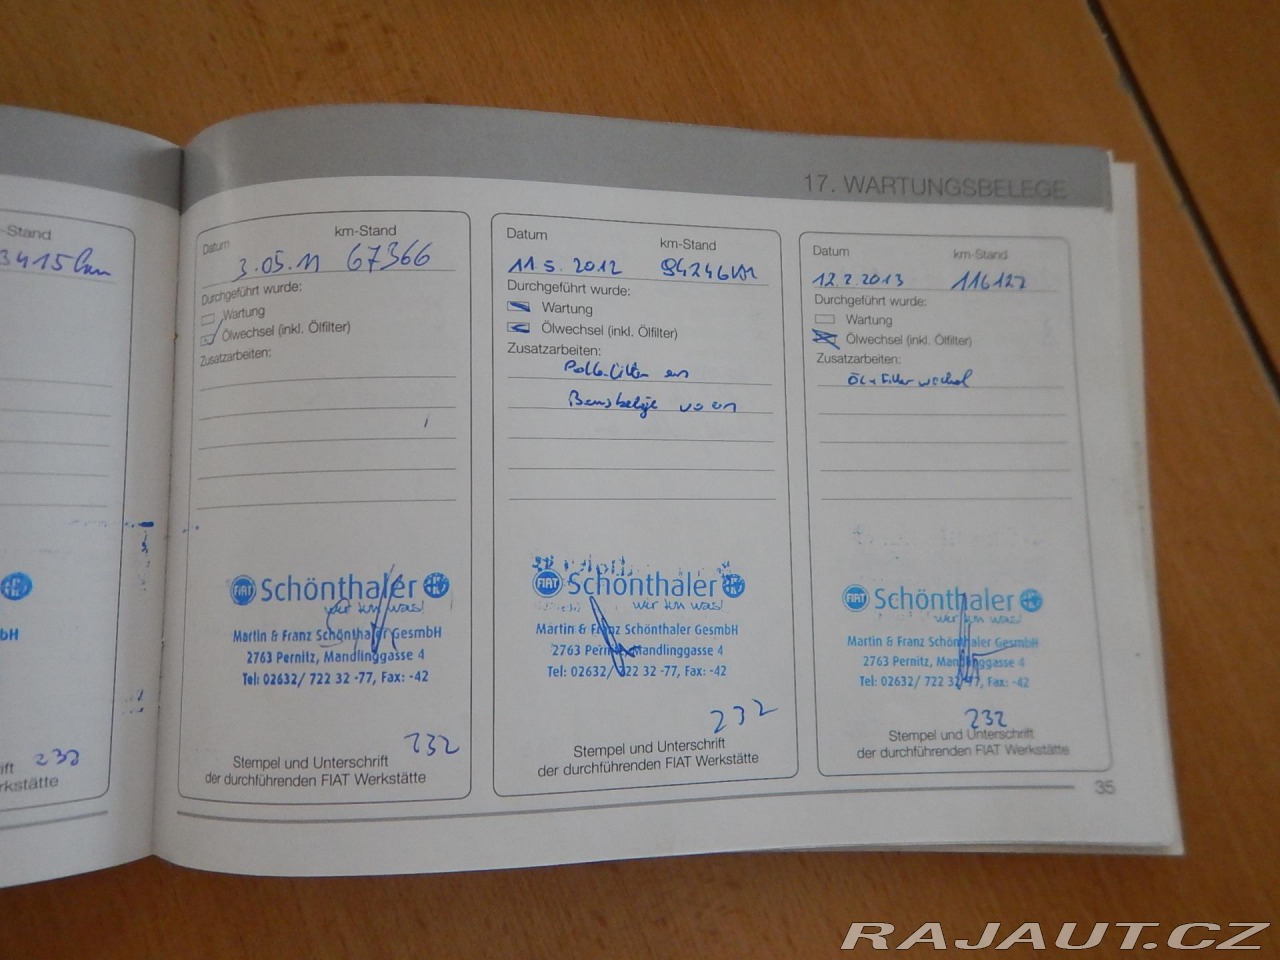 17. WARTUNGSBELEGE
-Stand
3415 km
bH
232
ift
rkstätte
Datum km-Stand
3.05.11 67366
Durchgeführt wurde:
Wartung
Ölwechsel (inkl. Ölfilter)
Zusatzarbeiten:
FIAT Schönthaler
wer kun was!
Martin & Franz Schönthaler GesmbH
2763 Pernitz, Mandlinggasse 4
Tel: 02632/ 722 32 -77, Fax: -42
232
Stempel und Unterschrift
der durchführenden FIAT Werkstätte
Datum km-Stand
11 5. 2012 94246
Durchgeführt wurde:
Wartung
Ölwechsel (inkl. Ölfilter)
Zusatzarbeiten:
FIAT Schönthaler
wer kun was!
Martin & Franz Schönthaler GesmbH
2763 Pernitz, Mandlinggasse 4
Tel: 02632/ 722 32 -77, Fax: -42
232
Stempel und Unterschrift
der durchführenden FIAT Werkstätte
Datum km-Stand
12.2.2013 116127
Durchgeführt wurde:
Wartung
Ölwechsel (inkl. Ölfilter)
Zusatzarbeiten:
Öl + Filter wechsel
FIAT Schönthaler
wer kun was!
Martin & Franz Schönthaler GesmbH
2763 Pernitz, Mandlinggasse 4
Tel: 02632/ 722 32 -77, Fax: -42
232
Stempel und Unterschrift
der durchführenden FIAT Werkstätte
35
RAJAUT.CZ